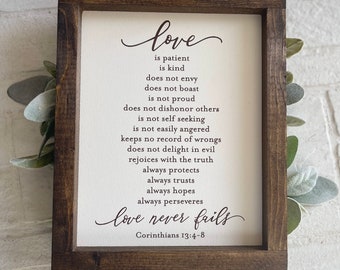 love
is patient
is kind
does not envy
does not boast
is not proud
does not dishonor others
is not self seeking
is not easily angered
keeps no record of wrongs
does not delight in evil
rejoices with the truth
always protects
always trusts
always hopes
always perseveres
love never fails
Corinthians 13:4-8